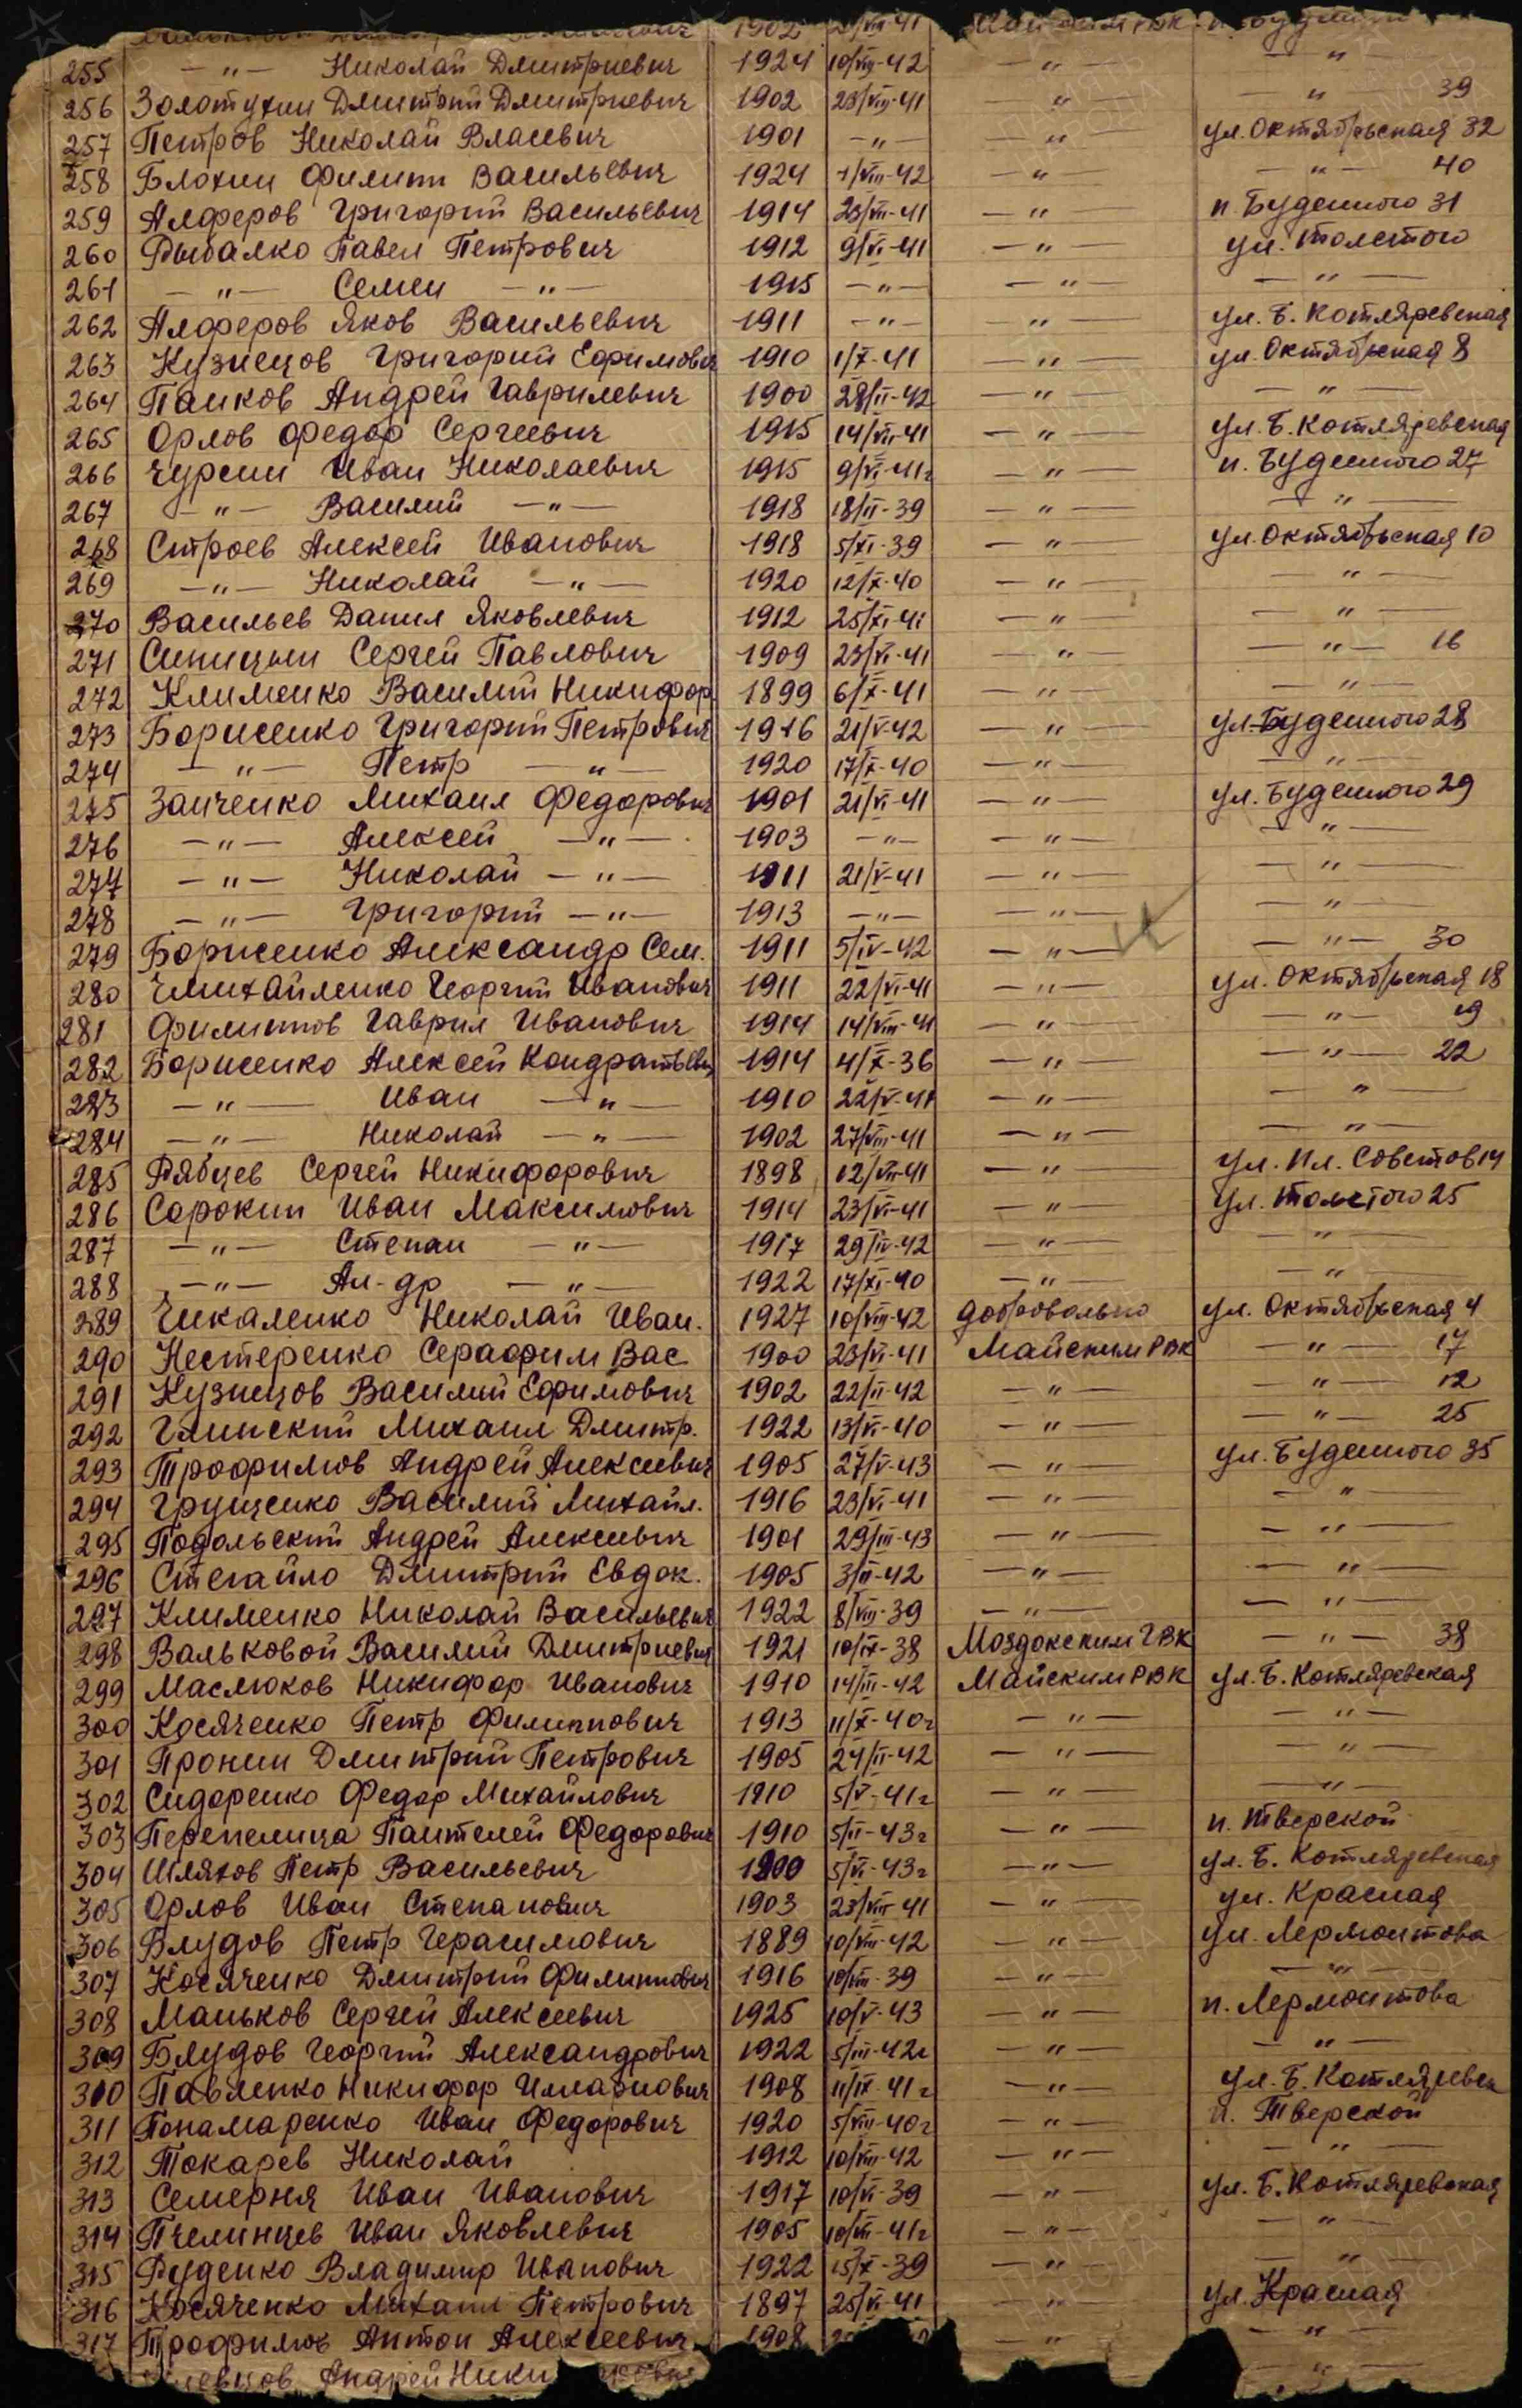 1902 Майским РВК п. Буденного
255 —"— Николай Дмитриевич 1924 10/VIII-42 —"— —"—
256 Золотухин Дмитрий Дмитриевич 1902 28/VIII-41 —"— —"— 39
257 Петров Николай Власевич 1901 —"— —"— ул. Октябрьская 32
258 Блохин Филипп Васильевич 1924 1/VIII-42 —"— —"— 40
259 Алферов Григорий Васильевич 1914 23/VII-41 —"— п. Буденного 31
260 Рыбалко Павел Петрович 1912 9/VI-41 —"— ул. Толстого
261 —"— Семен —"— 1915 —"— —"— —"—
262 Алферов Яков Васильевич 1911 —"— —"— ул. Б. Котляревская
263 Кузнецов Григорий Ефимович 1910 1/X-41 —"— ул. Октябрьская 8
264 Панков Андрей Гаврилевич 1900 28/II-42 —"— —"—
265 Орлов Федор Сергеевич 1915 14/VII-41 —"— ул. Б. Котляревская
266 Чурсин Иван Николаевич 1915 9/VI-41г —"— п. Буденного 27
267 —"— Василий —"— 1918 18/II-39 —"— —"—
268 Строев Алексей Иванович 1918 5/XI-39 —"— ул. Октябрьская 10
269 —"— Николай —"— 1920 12/X-40 —"— —"—
270 Васильев Данил Яковлевич 1912 25/XI-41 —"— —"—
271 Синицын Сергей Павлович 1909 23/VI-41 —"— —"— 16
272 Клименко Василий Никифор. 1899 6/X-41 —"— —"—
273 Борисенко Григорий Петрович 1916 21/V-42 —"— ул. Буденного 28
274 —"— Петр —"— 1920 17/X-40 —"— —"—
275 Заиченко Михаил Федорович 1901 21/VI-41 —"— ул. Буденного 29
276 —"— Алексей —"— 1903 —"— —"— —"—
277 —"— Николай —"— 1911 21/V-41 —"— —"—
278 —"— Григорий —"— 1913 —"— —"— —"—
279 Борисенко Александр Сем. 1911 5/IV-42 —"— —"— 30
280 Чмихайленко Георгий Иванович 1911 22/VI-41 —"— ул. Октябрьская 18
281 Филиппов Гаврил Иванович 1914 14/VIII-41 —"— —"— 19
282 Борисенко Алексей Кондратьевич 1914 4/X-36 —"— —"— 22
283 —"— Иван —"— 1910 22/V-41 —"— —"—
284 —"— Николай —"— 1902 27/VIII-41 —"— —"—
285 Рябцев Сергей Никифорович 1898 12/VII-41 —"— ул. Пл. Советов 14
286 Сорокин Иван Максимович 1914 23/VI-41 —"— ул. Толстого 25
287 —"— Степан —"— 1917 29/IV-42 —"— —"—
288 —"— Ал-др —"— 1922 17/XI-40 —"— —"—
289 Чикаленко Николай Иван. 1927 10/VIII-42 добровольно ул. Октябрьская 4
290 Нестеренко Серафим Вас 1900 23/VI-41 Майским РВК —"— 17
291 Кузнецов Василий Ефимович 1902 22/II-42 —"— —"— 12
292 Глинский Михаил Дмитр. 1922 13/VI-40 —"— —"— 25
293 Трофимов Андрей Алексеевич 1905 27/V-43 —"— ул. Буденного 35
294 Грущенко Василий Михайл. 1916 23/VI-41 —"— —"—
295 Подольский Андрей Алексеевич 1901 29/III-43 —"— —"—
296 Стегайло Дмитрий Евдок. 1905 3/II-42 —"— —"—
297 Клименко Николай Васильевич 1922 8/VIII-39 —"— —"—
298 Вальковой Василий Дмитриевич 1921 10/IX-38 Моздокским ГВК —"— 38
299 Маслюков Никифор Иванович 1910 14/III-42 Майским РВК ул. Б. Котляревская
300 Косяченко Петр Филиппович 1913 11/X-40г —"— —"—
301 Пронин Дмитрий Петрович 1905 24/II-42 —"— —"—
302 Сидоренко Федор Михайлович 1910 5/V-41г —"— —"—
303 Перепелица Пантелей Федорович 1910 5/II-43г —"— п. Тверской
304 Шляхов Петр Васильевич 1900 5/VI-43г —"— ул. Б. Котляревская
305 Орлов Иван Степанович 1903 23/VIII-41 —"— ул. Красная
306 Блудов Петр Герасимович 1889 10/VIII-42 —"— ул. Лермонтова
307 Косяченко Дмитрий Филиппович 1916 10/VIII-39 —"— —"—
308 Маньков Сергей Алексеевич 1925 10/V-43 —"— п. Лермонтова
309 Блудов Георгий Александрович 1922 5/III-42г —"— —"—
310 Павленко Никифор Илларионович 1908 11/IX-41г —"— ул. Б. Котляревск
311 Понамаренко Иван Федорович 1920 5/VIII-40г —"— п. Тверской
312 Токарев Николай 1912 10/VIII-42 —"— —"—
313 Семерня Иван Иванович 1917 10/VI-39 —"— ул. Б. Котляревская
314 Пчелинцев Иван Яковлевич 1905 10/VII-41г —"— —"—
315 Руденко Владимир Иванович 1922 15/X-39 —"— —"—
316 Косяченко Михаил Петрович 1897 25/VI-41 —"— ул. Красная
317 Трофимов Антон Алексеевич 1908 —"— —"—
Андрей